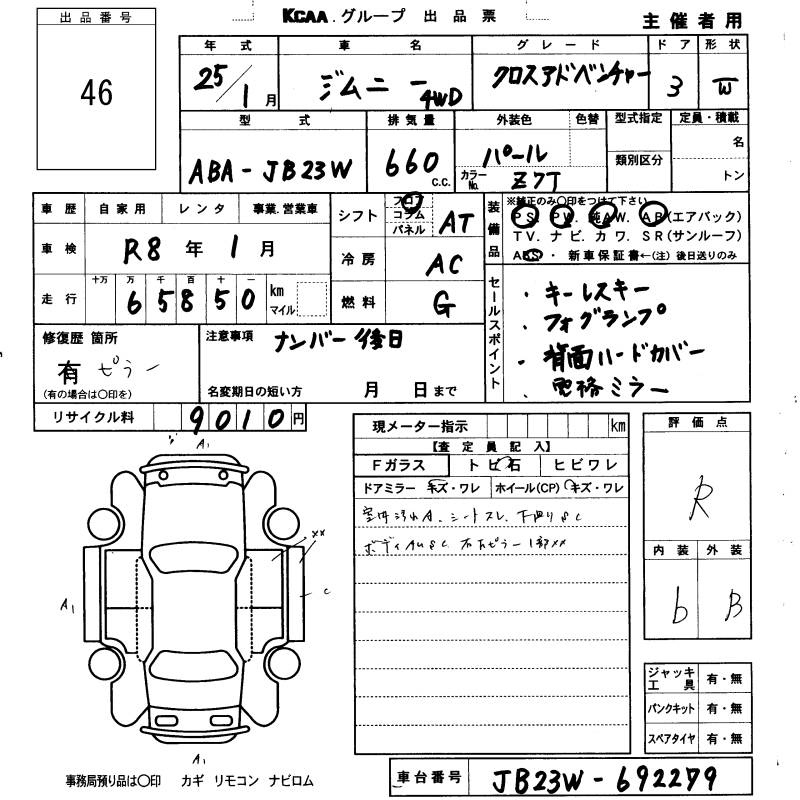 KCAA.グループ 出品票
主催者用
出品番号
46
年式 車名 グレード ドア 形状
25/1月 ジムニー 4WD クロスアドベンチャー 3 W
型式 排気量 外装色 色替 型式指定 定員・積載
ABA-JB23W 660 c.c. パール 類別区分 名
カラーNo. Z7T トン
車歴 自家用 レンタ 事業.営業車
シフト フロア コラム パネル AT
装備品 ※純正のみ〇印をつけて下さい
PS. PW. 純AW. AB(エアバック)
TV. ナビ. カワ. SR(サンルーフ)
ABS・新車保証書←(注)後日送りのみ
車検 R8年1月
冷房 AC
走行 十万 万 千 百 十 一 65850 km マイル
燃料 G
セールスポイント
・キーレスキー
・フォグランプ
・背面ハードカバー
・電格ミラー
修復歴 箇所
有 ピラー
(有の場合は〇印を)
注意事項 ナンバー後日
名変期日の短い方 月 日まで
リサイクル料 9010円
現メーター指示 km
【査定員記入】
Fガラス トビ石 ヒビワレ
ドアミラー キズ・ワレ ホイール(CP) キズ・ワレ
室内汚れA.シートスレ.下廻りSC
ボディAUSC.右右ピラー1部××
評価点
R
内装 外装
b B
A1
××
C
A1
A1
ジャッキ工具 有・無
パンクキット 有・無
スペアタイヤ 有・無
事務局預り品は〇印 カギ リモコン ナビロム
車台番号 JB23W-692279